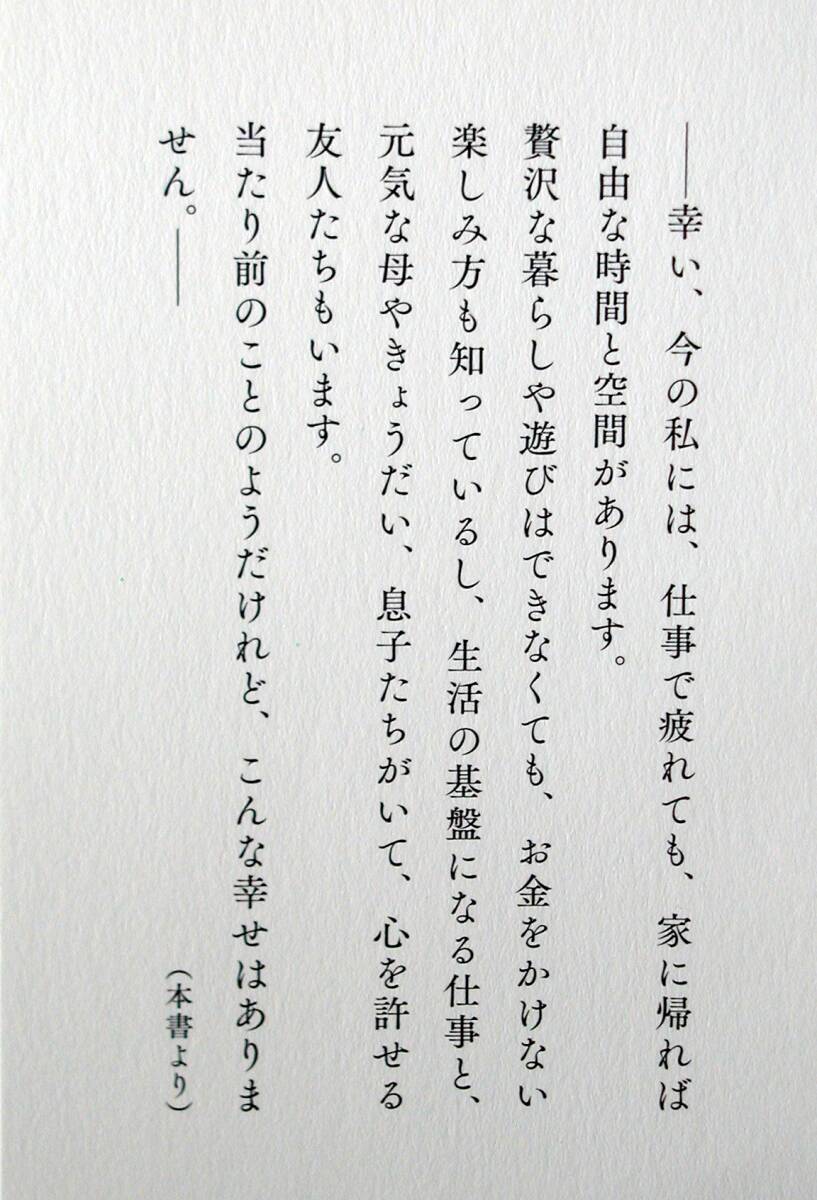 ――幸い、今の私には、仕事で疲れても、家に帰れば
自由な時間と空間があります。
贅沢な暮らしや遊びはできなくても、お金をかけない
楽しみ方も知っているし、生活の基盤になる仕事と、
元気な母やきょうだい、息子たちがいて、心を許せる
友人たちもいます。
当たり前のことのようだけれど、こんな幸せはありま
せん。――
（本書より）